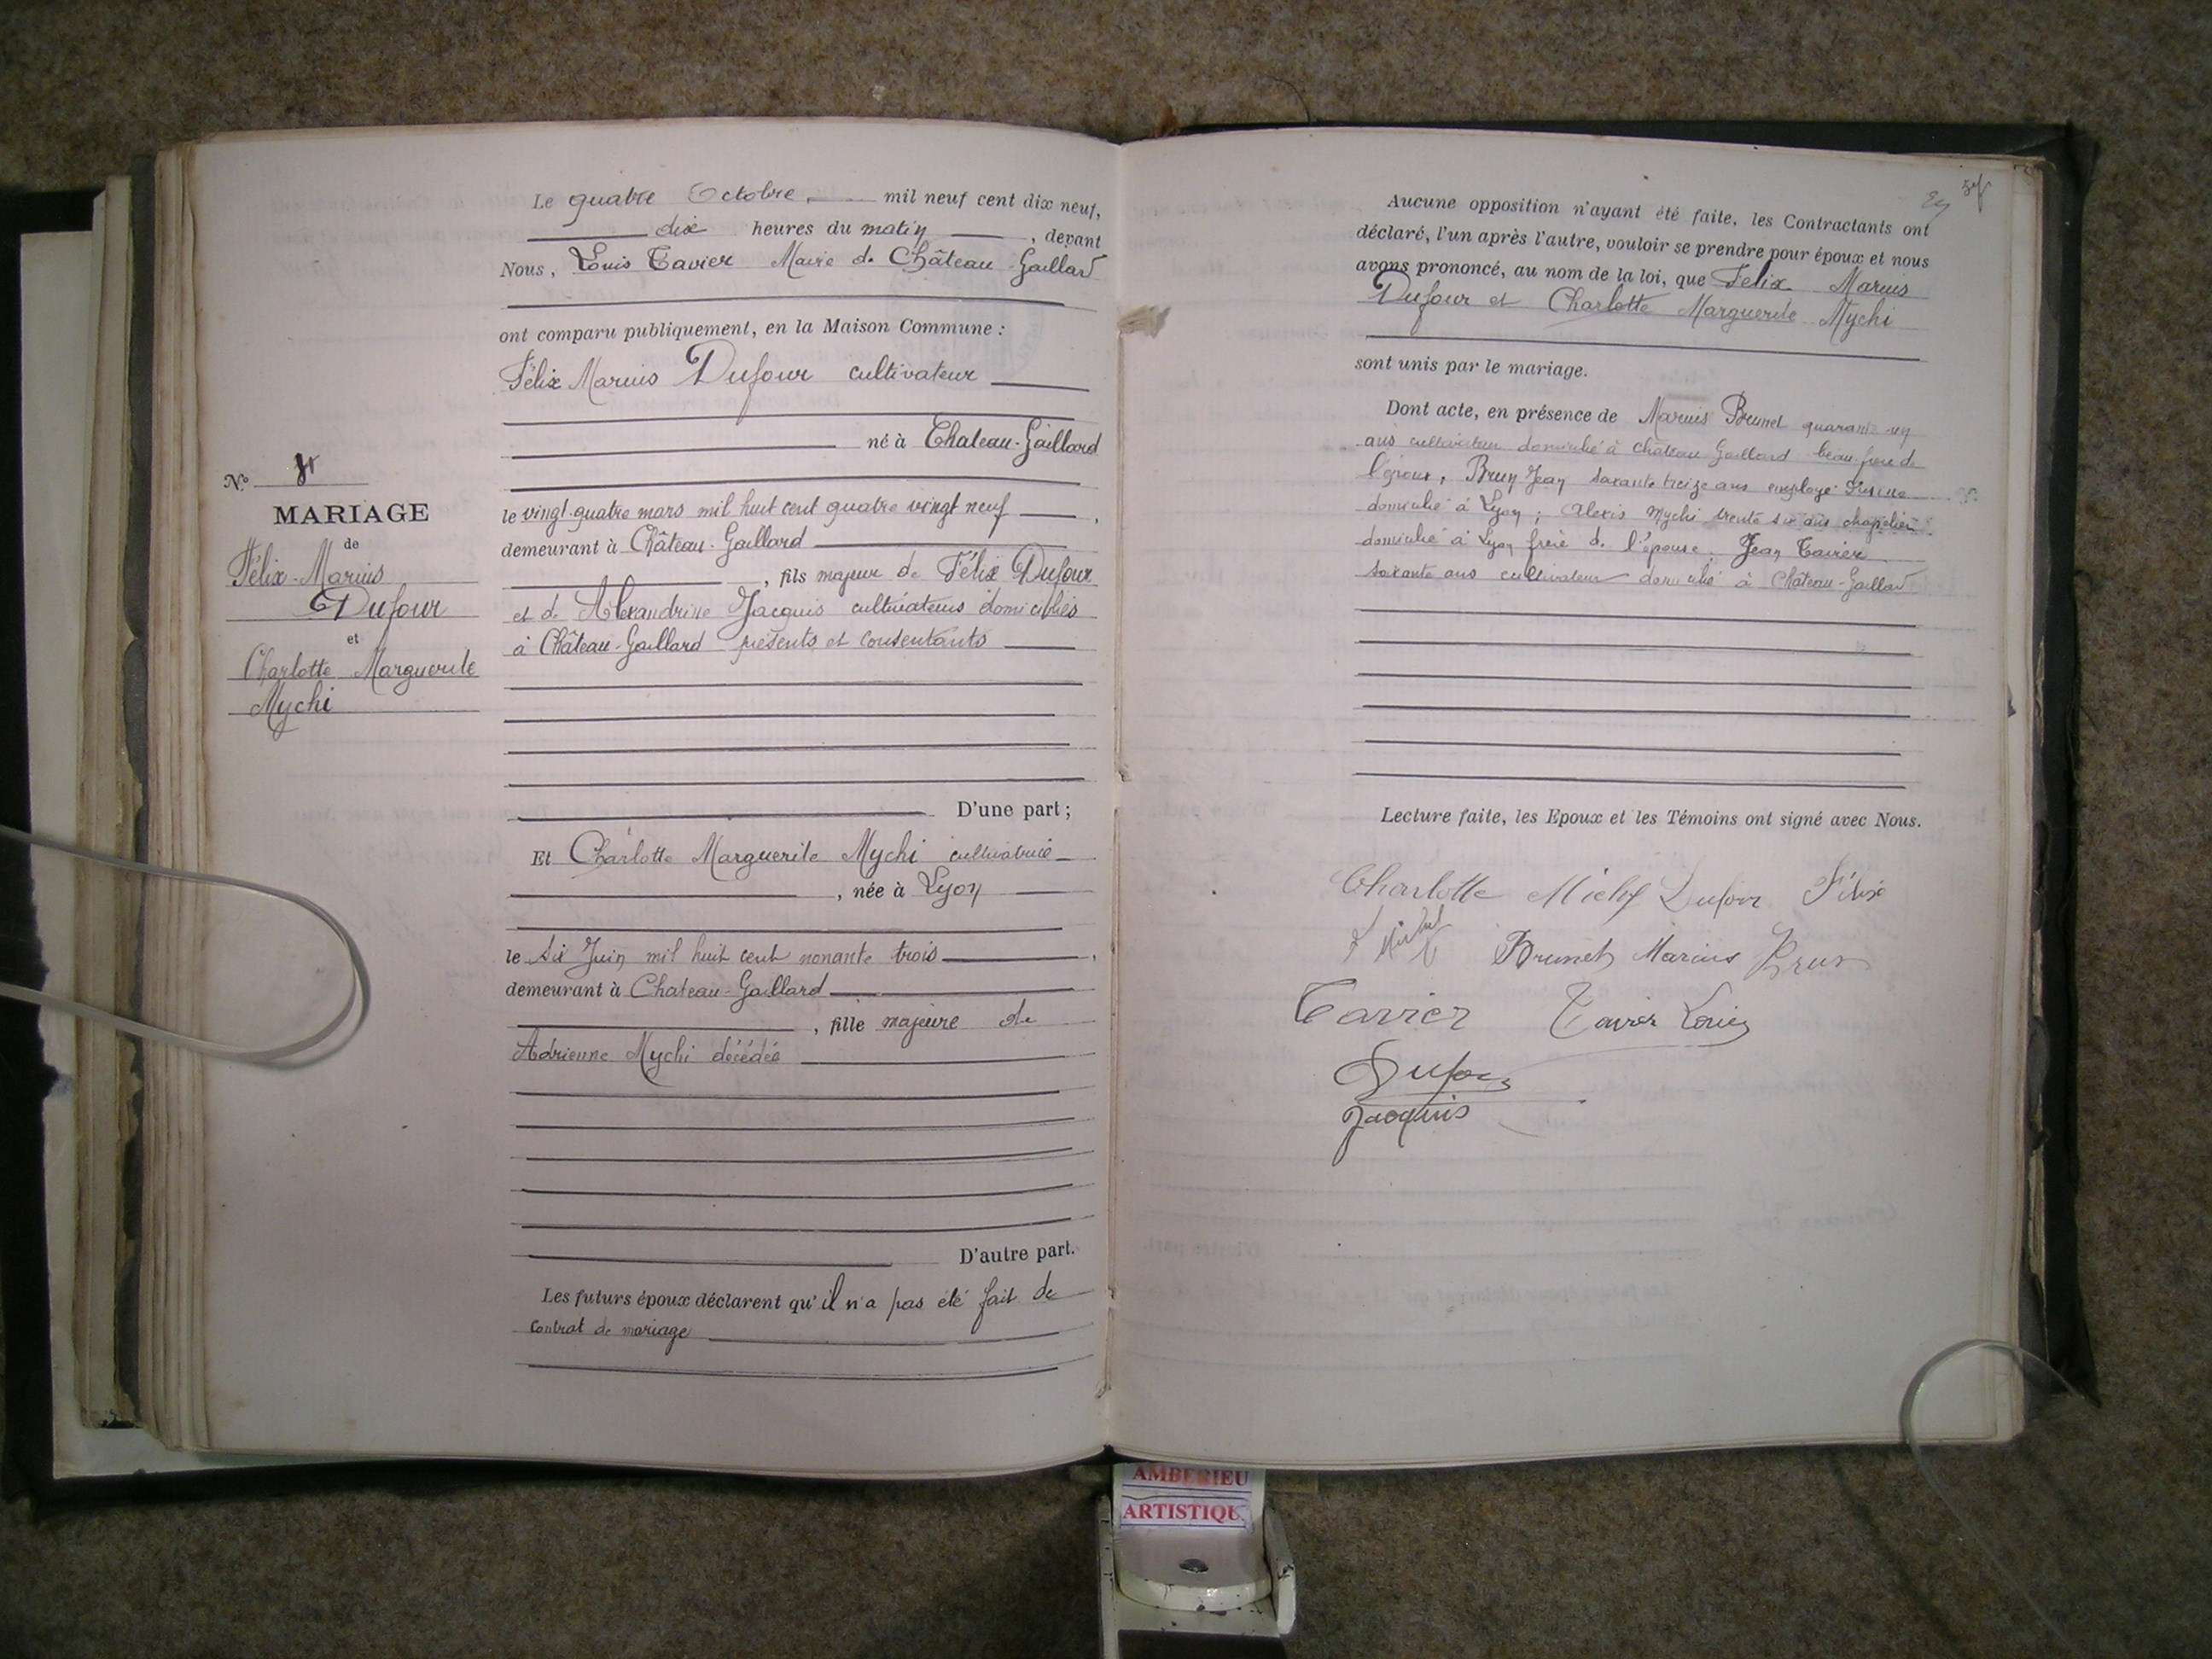 Le quatre Octobre mil neuf cent dix neuf,
dix heures du matin, devant
Nous, Louis Tavier Maire de Château Gaillard
ont comparu publiquement, en la Maison Commune :
Félix Marius Dufour cultivateur
né à Chateau-Gaillard
le vingt-quatre mars mil huit cent quatre vingt neuf,
demeurant à Château-Gaillard
, fils majeur de Félix Dufour
et de Alexandrine Jacquis cultivateurs domiciliés
à Château-Gaillard présents et consentants
D'une part ;
No
MARIAGE
de
Félix-Marius
Dufour
et
Charlotte Marguerite
Mychi
Et Charlotte Marguerite Mychi cultivatrice
, née à Lyon
le six Juin mil huit cent nonante trois,
demeurant à Chateau-Gaillard
, fille majeure de
Adrienne Mychi décédée
D'autre part.
Les futurs époux déclarent qu'il n'a pas été fait de
contrat de mariage
Aucune opposition n'ayant été faite, les Contractants ont
déclaré, l'un après l'autre, vouloir se prendre pour époux et nous
avons prononcé, au nom de la loi, que Félix Marius
Dufour et Charlotte Marguerite Mychi
sont unis par le mariage.
Dont acte, en présence de Marius Brunet quarante un
ans cultivateur domicilié à Château Gaillard beau-frère de
l'époux, Brun Jean soixante treize ans employé
domicilié à Lyon ; Alexis Mychi trente six ans chapelier
domicilié à Lyon frère de l'épouse ; Jean Tavier
soixante ans cultivateur domicilié à Château-Gaillard
Lecture faite, les Epoux et les Témoins ont signé avec Nous.
Charlotte Michy Dufour Félix
Brunet Marius Brun
Tavier Tavier Louis
Dufour
Jacquis
AMBERIEU
ARTISTIQU